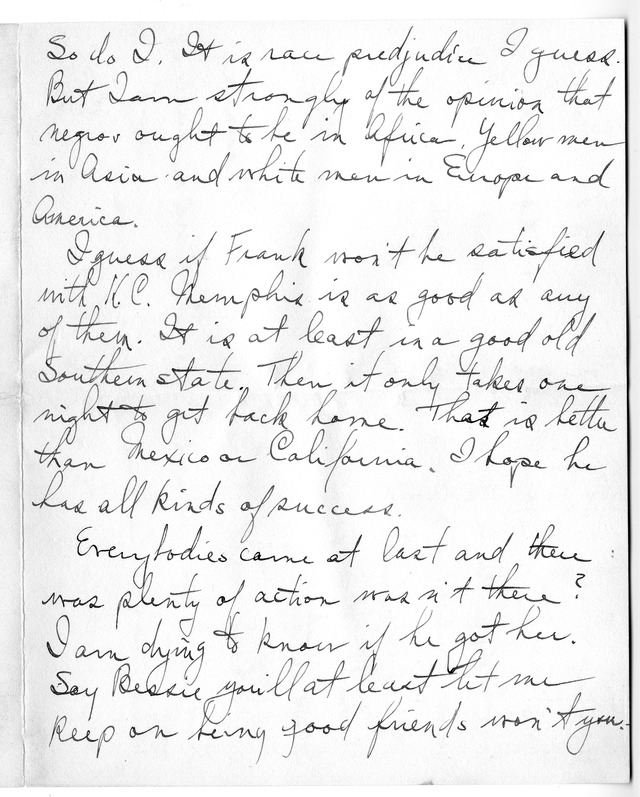 So do I. It is race predjudice I guess.
But I am strongly of the opinion that
negros ought to be in Africa, Yellow men
in Asia and white men in Europe and
America.
I guess if Frank won't be satisfied
with K.C. Memphis is as good as any
of them. It is at least in a good old
Southern state. Then it only takes one
night to get back home. That is better
than Mexico or California. I hope he
has all kinds of success.
Everybodies came at last and there
was plenty of action wasn't there?
I am dying to know if he got her.
Say Bessie you'll at least let me
keep on being good friends won't you.